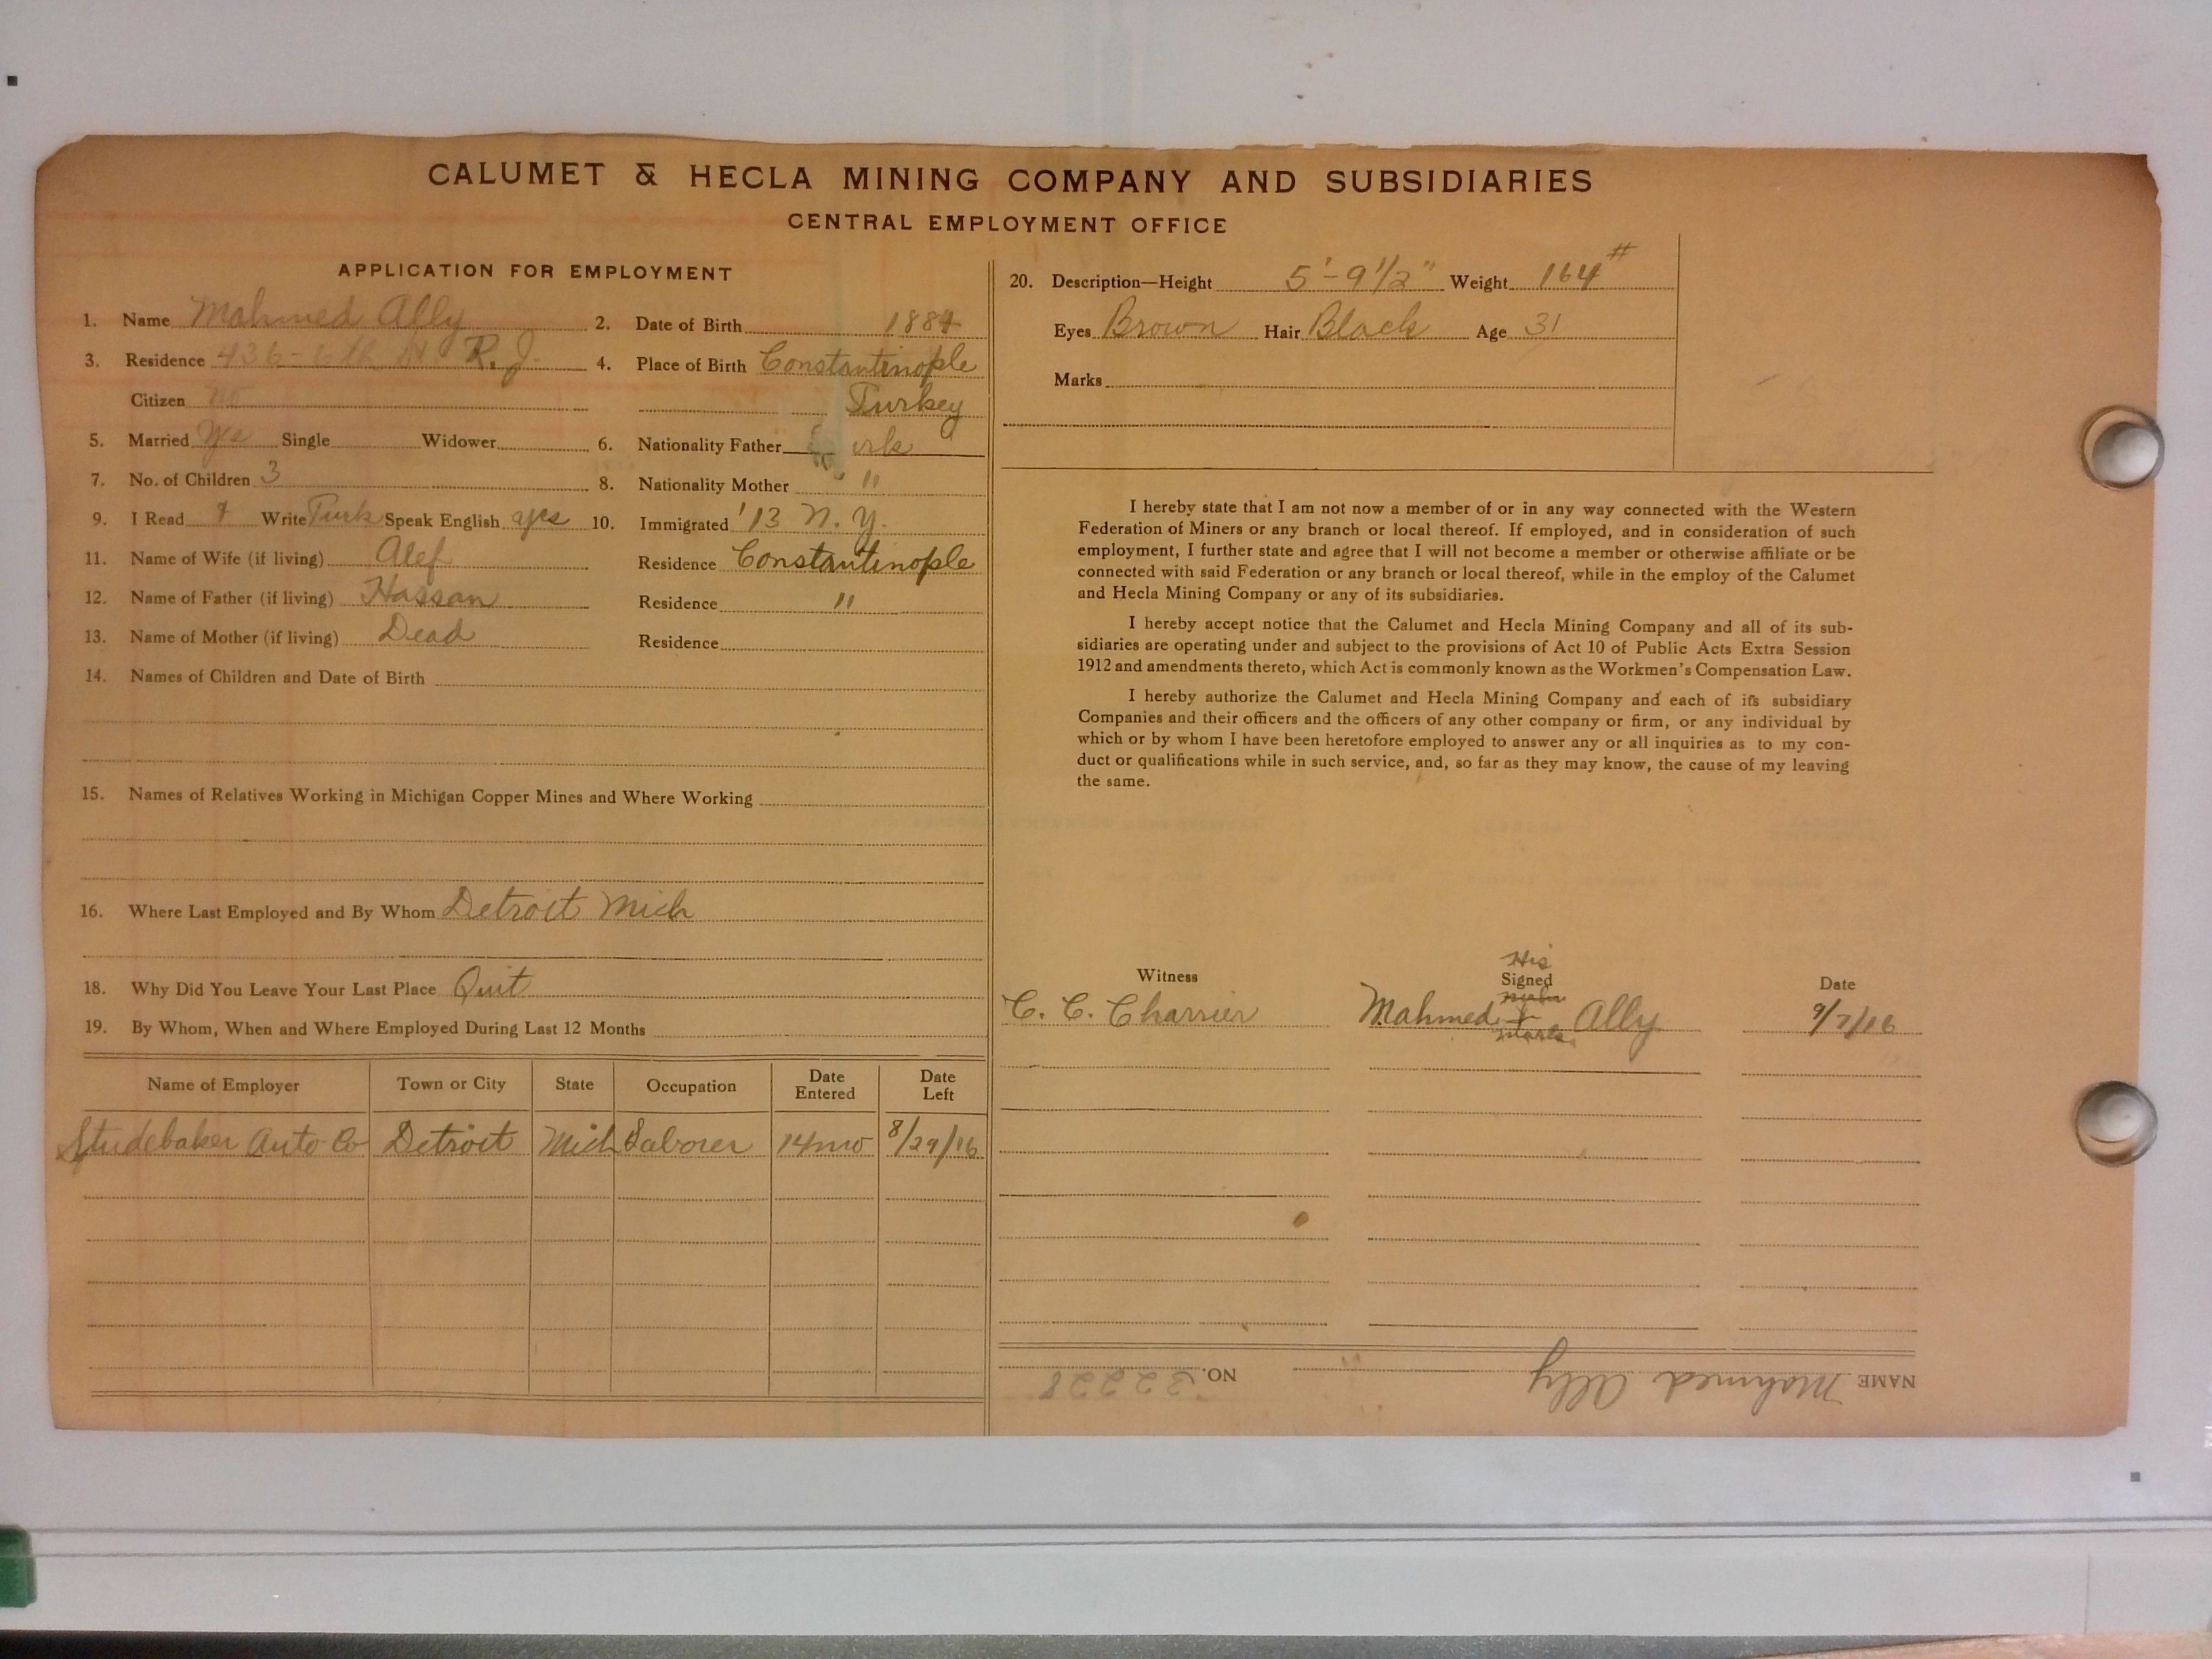 CALUMET & HECLA MINING COMPANY AND SUBSIDIARIES
CENTRAL EMPLOYMENT OFFICE
APPLICATION FOR EMPLOYMENT
1. Name Mahmed Ally 2. Date of Birth 1884
3. Residence 436-6th St. R. J. 4. Place of Birth Constantinople
Citizen no Turkey
5. Married Yes Single Widower 6. Nationality Father
7. No. of Children 3 8. Nationality Mother "
9. I Read & Write Turk Speak English yes 10. Immigrated '13 N. Y.
11. Name of Wife (if living) Alef Residence Constantinople
12. Name of Father (if living) Hassan Residence "
13. Name of Mother (if living) Dead Residence
14. Names of Children and Date of Birth
15. Names of Relatives Working in Michigan Copper Mines and Where Working
16. Where Last Employed and By Whom Detroit Mich
18. Why Did You Leave Your Last Place Quit
19. By Whom, When and Where Employed During Last 12 Months
Name of Employer Town or City State Occupation Date Entered Date Left
Studebaker Auto Co Detroit Mich Laborer 14 mo 8/29/16
20. Description—Height 5'-9 1/2" Weight 164 #
Eyes Brown Hair Black Age 31
Marks
I hereby state that I am not now a member of or in any way connected with the Western
Federation of Miners or any branch or local thereof. If employed, and in consideration of such
employment, I further state and agree that I will not become a member or otherwise affiliate or be
connected with said Federation or any branch or local thereof, while in the employ of the Calumet
and Hecla Mining Company or any of its subsidiaries.
I hereby accept notice that the Calumet and Hecla Mining Company and all of its sub-
sidiaries are operating under and subject to the provisions of Act 10 of Public Acts Extra Session
1912 and amendments thereto, which Act is commonly known as the Workmen's Compensation Law.
I hereby authorize the Calumet and Hecla Mining Company and each of its subsidiary
Companies and their officers and the officers of any other company or firm, or any individual by
which or by whom I have been heretofore employed to answer any or all inquiries as to my con-
duct or qualifications while in such service, and, so far as they may know, the cause of my leaving
the same.
His
Witness Signed Date
C. C. Charrier Mahmed + Ally 9/7/16
mark
NAME Mahmed Ally NO. 32228